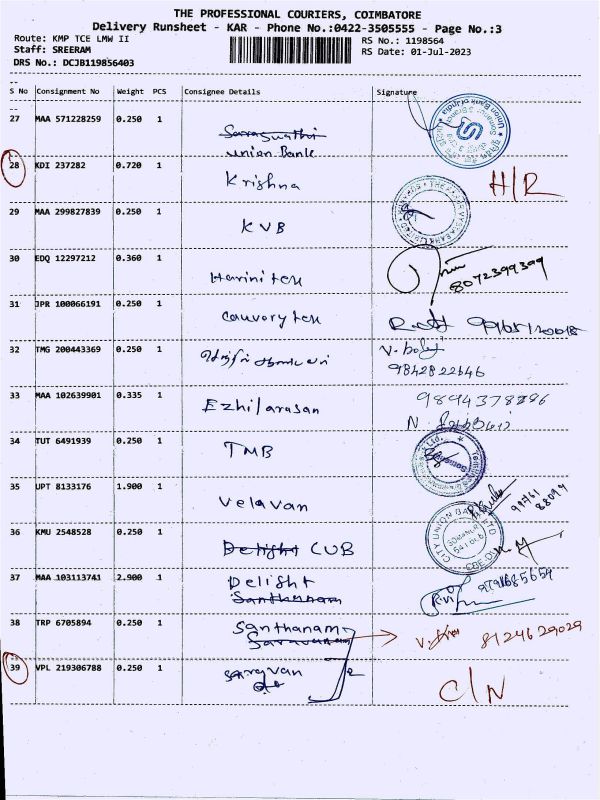 THE PROFESSIONAL COURIERS, COIMBATORE
Delivery Runsheet - KAR - Phone No.:0422-3505555 - Page No.:3
Route: KMP TCE LMW II
RS No.: 1198564
Staff: SREERAM
RS Date: 01-Jul-2023
DRS No.: DCJB119856403
S No Consignment No Weight PCS Consignee Details Signature
27 MAA 571228259 0.250 1 Saraswathi
Union Bank
28 KDI 237282 0.720 1 Krishna H/R
29 MAA 299827839 0.250 1 KVB
30 EDQ 12297212 0.360 1 Harini tex 8072399399
31 JPR 100066191 0.250 1 Cauvery tex
32 TMG 200443369 0.250 1 V. boly
9842822646
33 MAA 102639901 0.335 1 Ezhilarasan 9894378796
34 TUT 6491939 0.250 1 TMB
35 UPT 8133176 1.900 1 Velavan 99761 88099
36 KMU 2548528 0.250 1 Delight CUB
CITY UNION BANK LTD
37 MAA 103113741 2.900 1 Delight 9791685654
Santhanam
38 TRP 6705894 0.250 1 Santhanam 8124629029
Saravanan
39 VPL 219306788 0.250 1 Saravan C/N